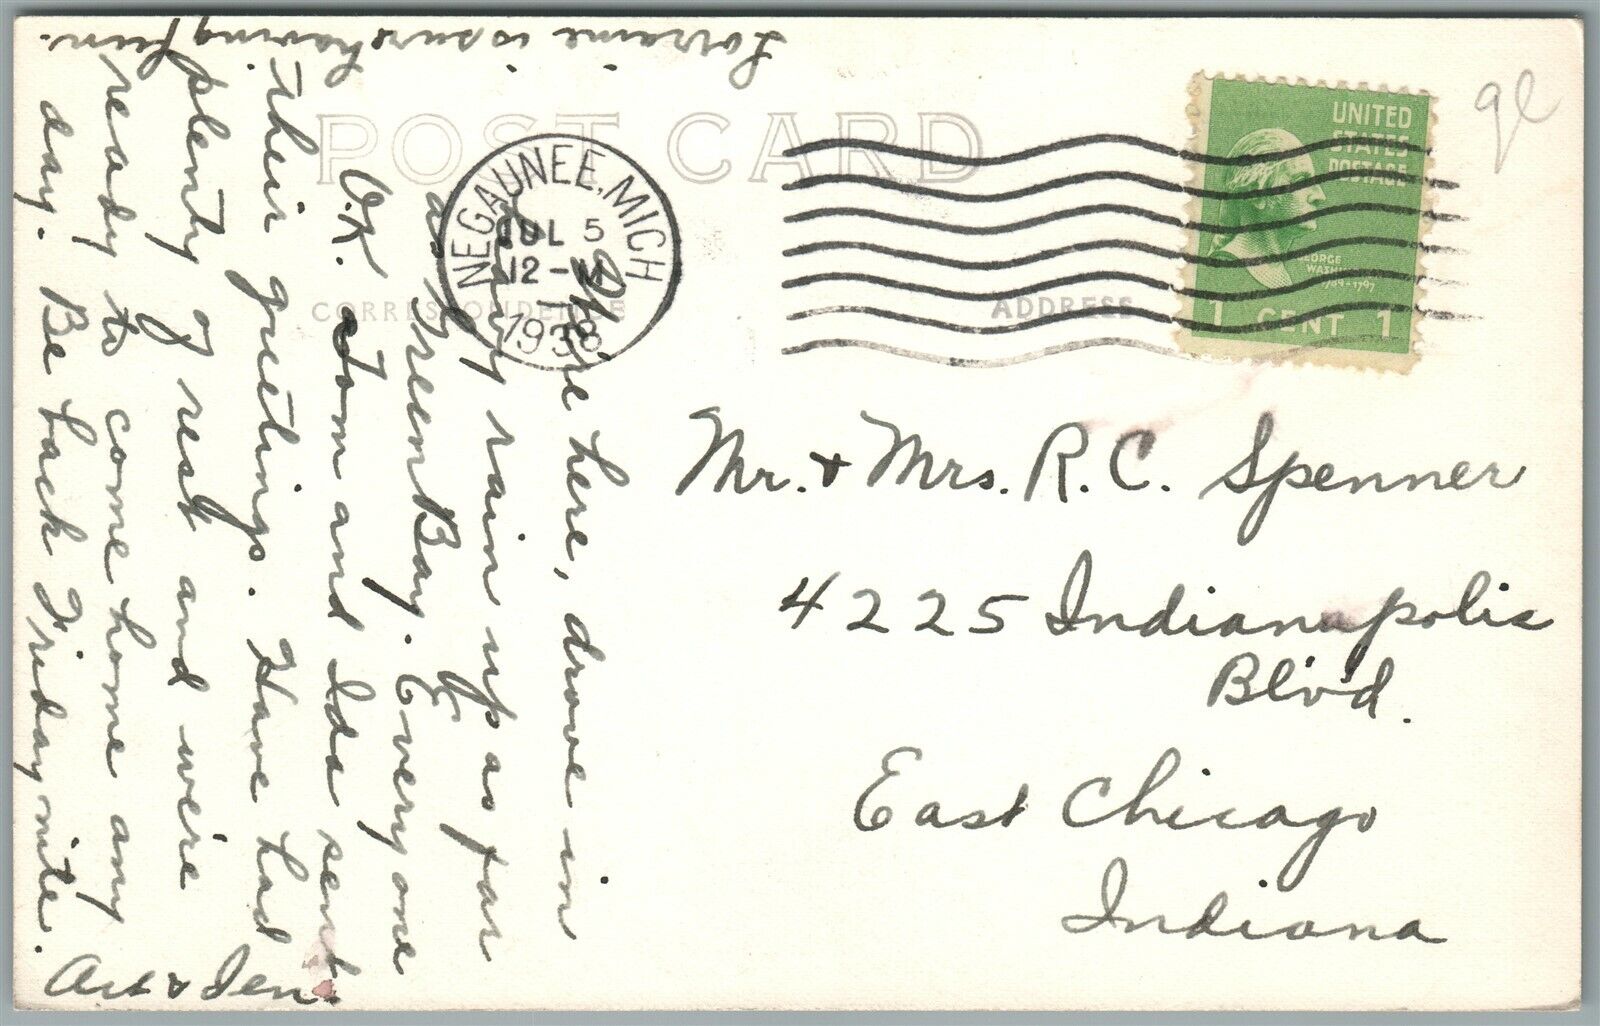 POST CARD
CORRESPONDENCE
ADDRESS
NEGAUNEE, MICH
JUL 5
12 - M
1938
UNITED
STATES
POSTAGE
GEORGE
WASH
1789-1797
1 CENT 1
We're here, drove in
rain up as far
as Green Bay. Every one
O.K. Tom and Ida sent
their greetings. Have had
plenty of rest and were
ready to come home any
day. Be back Friday nite.
Art & Jen.
Lorraine is sure having fun.
Mr. + Mrs. R. C. Spenner
4225 Indianapolis
Blvd.
East Chicago
Indiana